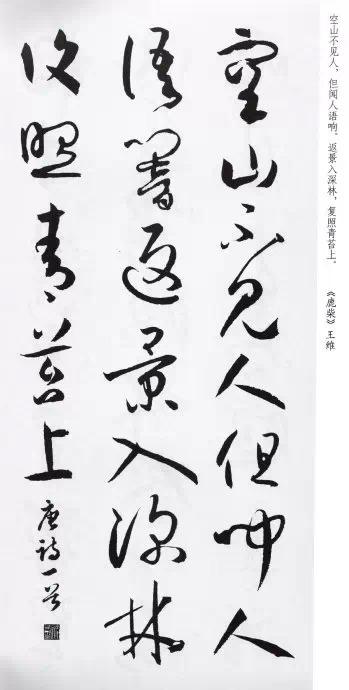 空山不见人但闻人
语响返景入深林
复照青苔上
唐诗一首
空山不见人，但闻人语响。返景入深林，复照青苔上。
《鹿柴》王维